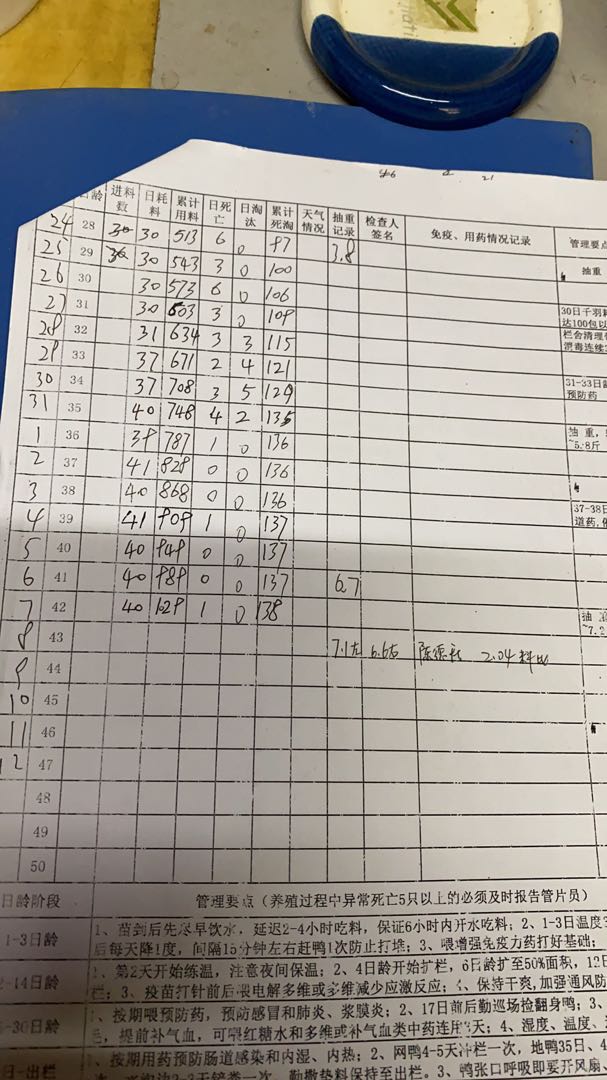 日龄 进料数 日耗料 累计用料 日死亡 日淘汰 累计死淘 天气情况 抽重记录 检查人签名 免疫、用药情况记录 管理要点
24 28 30 30 513 6 0 97 3.8 抽重
25 29 30 30 543 3 0 100
26 30 30 573 6 0 106
27 31 30 603 3 0 109 30日千羽耗 达100包以
28 32 31 634 3 3 115 栏舍清理 消毒连续
29 33 37 671 2 4 121
30 34 37 708 3 5 129 31-33日龄 预防药
31 35 40 748 4 2 135
1 36 39 787 1 0 136 抽重, ~5.8斤
2 37 41 828 0 0 136
3 38 40 868 0 0 136
4 39 41 909 1 0 137 37-38日 道药,
5 40 40 949 0 0 137
6 41 40 989 0 0 137 6.7
7 42 40 1029 1 0 138 抽 ~7.2
8 43 7.1左 6.6右 2.04料比
9 44
10 45
11 46
12 47
48
49
50
日龄阶段 管理要点(养殖过程中异常死亡5只以上的必须及时报告管片员)
1-3日龄 1、苗到后先尽早饮水,延迟2-4小时吃料,保证6小时内开水吃料;2、1-3日温度3
后每天降1度,间隔15分钟左右赶鸭1次防止打堆;3、喂增强免疫力药打好基础;
-14日龄 1、第2天开始练温,注意夜间保温;2、4日龄开始扩栏,6日龄扩至50%面积,12日
栏;3、疫苗打针前后喂电解多维或多维减少应激反应;4、保持干爽,加强通风防
-30日龄 1、按期喂预防药,预防感冒和肺炎、浆膜炎;2、17日前后勤巡场捡翻身鸭;3、
毛,提前补气血,可喂红糖水和多维或补气血类中药连用3天;4、湿度、温度、
日-出栏 、按期用药预防肠道感染和内湿、内热;2、网鸭4-5天冲栏一次,地鸭35日、4
2-3天铲粪一次,勤撒垫料保持至出栏。3、鸭张口呼吸即要开风扇